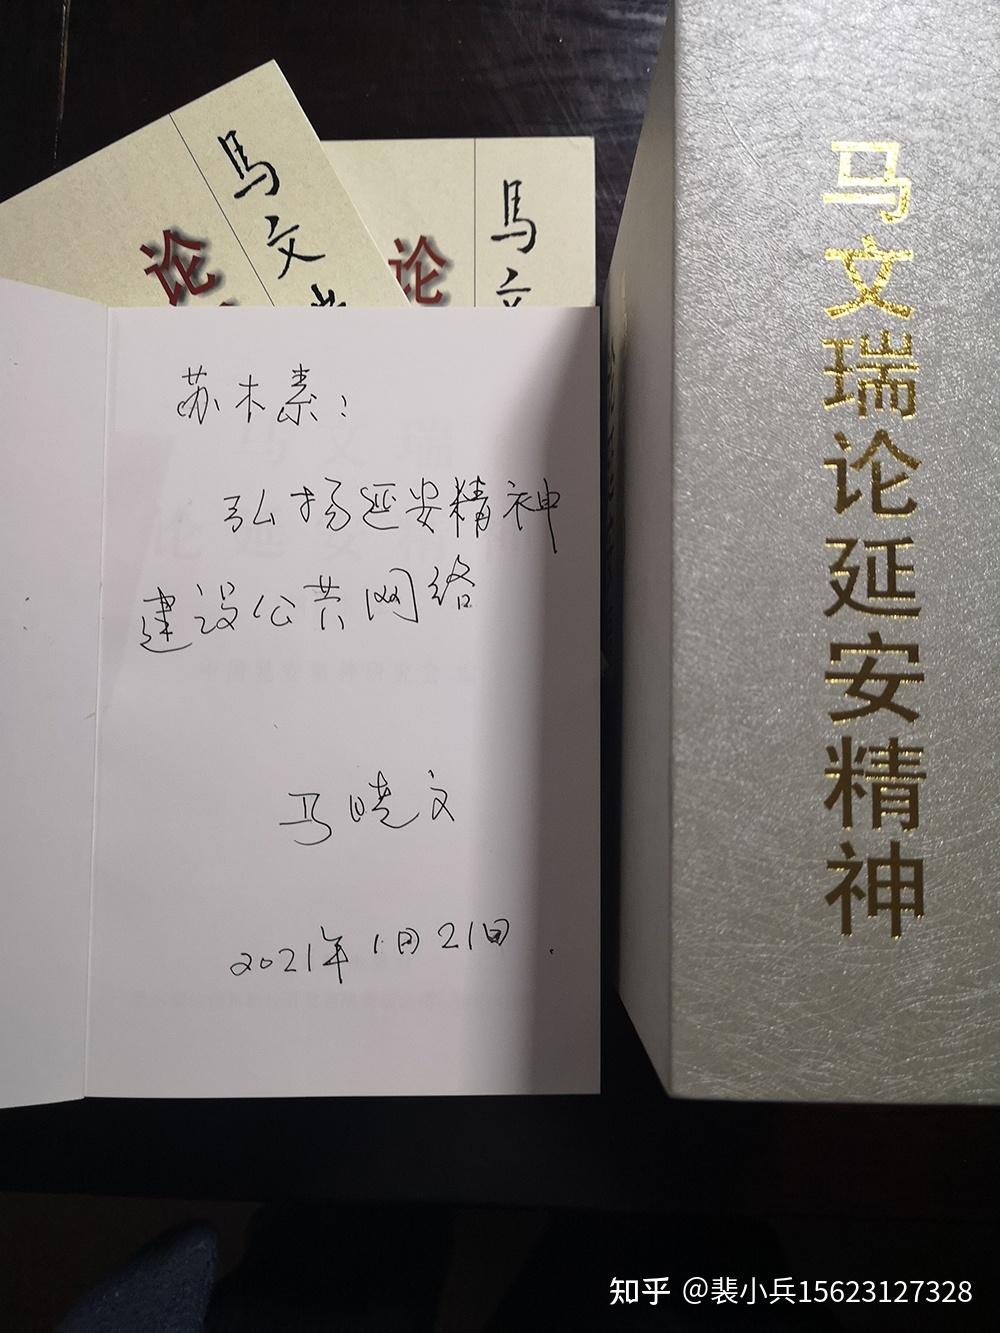 馬文
论
馬文
论
苏木素：
弘扬延安精神
建设公共网络
马晓文
2021年1月21日.
马文瑞论延安精神
知乎 @裴小兵15623127328